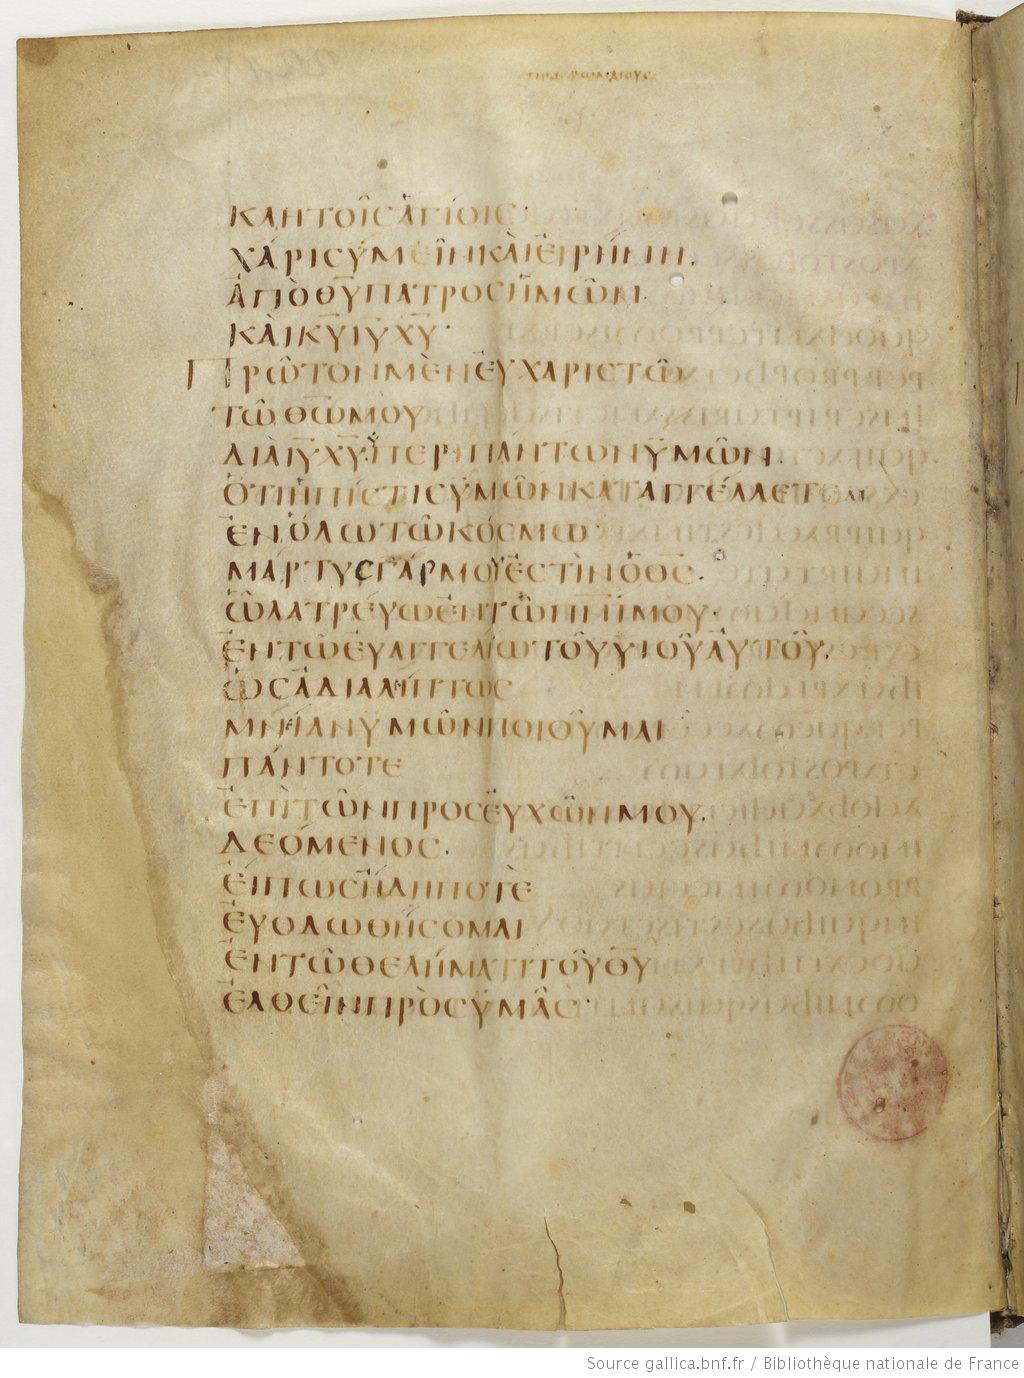 ΠΡΟΣ ΡΩΜΑΙΟΥΣ
ΚΛΗΤΟΙ͂Σ ἉΓΙΟΙΣ·
ΧΆΡΙΣ ΥΜΕΙ͂Ν ΚᾺΙ ἘΙΡΉΝΗ.
ἈΠῸ Θ̅Υ̅ ΠΑΤΡΟΣ ἩΜΩ͂Ν.
ΚᾺΙ Κ̅Υ̅ Ι̅Υ̅ Χ̅Υ̅·
ΠΡΩ͂ΤΟΝ ΜῈΝ ἘΥΧΑΡΙΣΤΩ͂
ΤΩ͂ Θ̅Ω̅ ΜΟΥ
ΔΙΑ Ι̅Υ̅ Χ̅Υ̅ ΫΠΕΡΙ ΠΑΝΤΩΝ ΫΜΩ͂Ν.
ὍΤΙ Ἡ ΠΊΣΤΙΣ ΥΜΩ͂Ν ΚΑΤΑΓΓΈΛΛΕΤΑΙ
ἘΝ ὍΛΩ ΤΩ͂ ΚΌΣΜΩ·
ΜΆΡΤΥΣ ΓΆΡ ΜΟΥ ἘΣΤῚΝ Ὁ Θ̅Σ̅.
Ὧ ΛΑΤΡΕΎΩ ἘΝ ΤΩ͂ Π̅Ν̅Ι̅ ΜΟΥ·
ἘΝ ΤΩ͂ ἘΥΑΓΓΕΛΊΩ ΤΟΥ͂ ΥΙΟΥ͂ ἈΥΤΟΥ͂.
ὩΣ ἈΔΙΑΛΉΠΤΩΣ
ΜΝΊΑΝ ΫΜΩ͂Ν ΠΟΙΟΥ͂ΜΑΙ
ΠΆΝΤΟΤΕ
ἘΠῚ ΤΩ͂Ν ΠΡΟΣΕΥΧΩ͂Ν ΜΟΥ.
ΔΕΌΜΕΝΟΣ.
ἘΙ ΠΩΣ ἨΔΗ ΠΟΤῈ
ἘΥΟΔΩΘΉΣΟΜΑΙ
ἘΝ ΤΩ͂ ΘΕΛΉΜΑΤΙ ΤΟΥ͂ Θ̅Υ̅
ἘΛΘΕΙ͂Ν ΠΡῸΣ ΫΜΑ͂Σ·
Source gallica.bnf.fr / Bibliothèque nationale de France